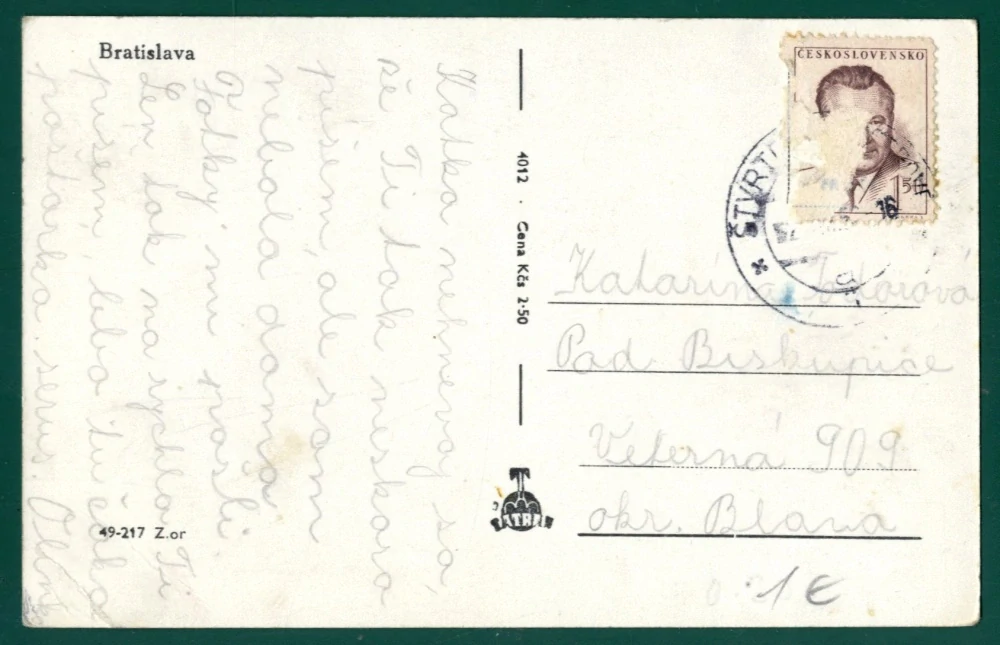 Bratislava
Katka nehnevaj sa,
že Ti tak neskoro
píšem, ale som
nebola doma.
Fotky mi pošli.
Len tak na rychlo Ti
píšem, lebo tu čaká
poštárka. servus.
49-217 Z.or
4012 · Cena Kčs 2·50
TATRAN
ČESKOSLOVENSKO
1.50
ŠTVRTO
16
Katarína
Pod Biskupice
Veterná 909
okr. Blava
1 €